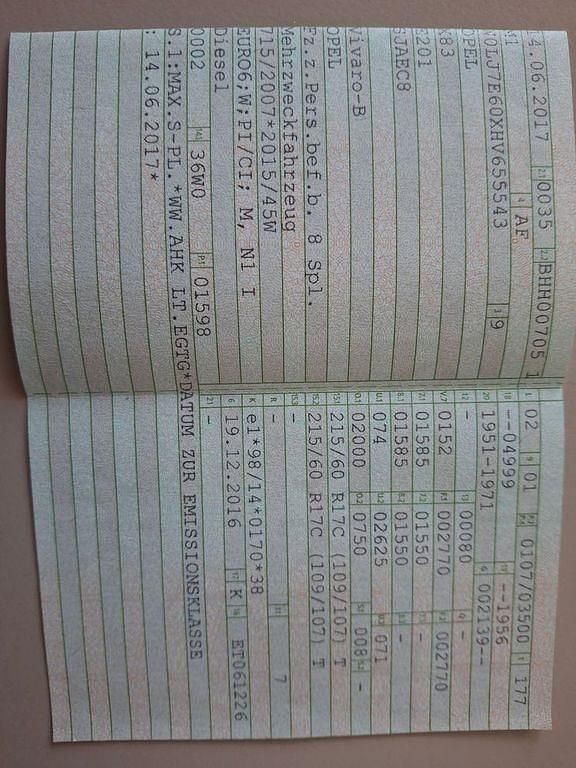 14.06.2017 2.1 0035 2.2 BHH00705 1
M1 4 AF
W0LJ7E60XHV655543 3 9
OPEL
X83
E201
SJAEC8
Vivaro-B
OPEL
Fz.z.Pers.bef.b. 8 Spl.
Mehrzweckfahrzeug
715/2007*2015/45W
EURO6;W;PI/CI; M, N1 I
Diesel
0002 14.1 36W0 P.1 01598
S.1:MAX.S-PL.*WW.AHK LT.EGTG*DATUM ZUR EMISSIONSKLASSE
: 14.06.2017*
L 02 9 01 P.2 P.4 0107/03500 T 177
18 --04999 19 --1956
20 1951-1971 G 002139--
12 - 13 00080 Q -
V.7 0152 F.1 002770 F.2 002770
7.1 01585 7.2 01550 7.3 -
8.1 01585 8.2 01550 8.3 -
U.1 074 U.2 02625 U.3 071
O.1 02000 O.2 0750 S.1 008 S.2 -
15.1 215/60 R17C (109/107) T
15.2 215/60 R17C (109/107) T
15.3 -
R - 11 7
K e1*98/14*0170*38
6 19.12.2016 17 K 16 ET061226
21 -